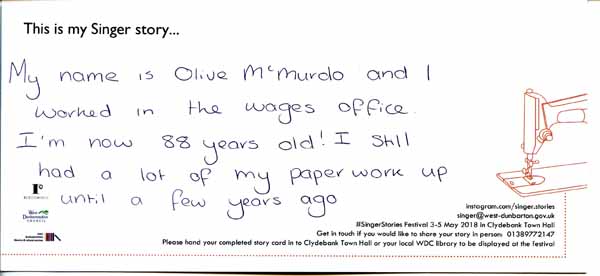 This is my Singer story...
My name is Olive McMurdo and I
worked in the wages office.
I'm now 88 years old! I still
had a lot of my paper work up
until a few years ago
instagram.com/singer.stories
singer@west-dunbarton.gov.uk
#SingerStories Festival 3-5 May 2018 in Clydebank Town Hall
Get in touch if you would like to share your story in person: 01389772147
Please hand your completed story card in to Clydebank Town Hall or your local WDC library to be displayed at the festival